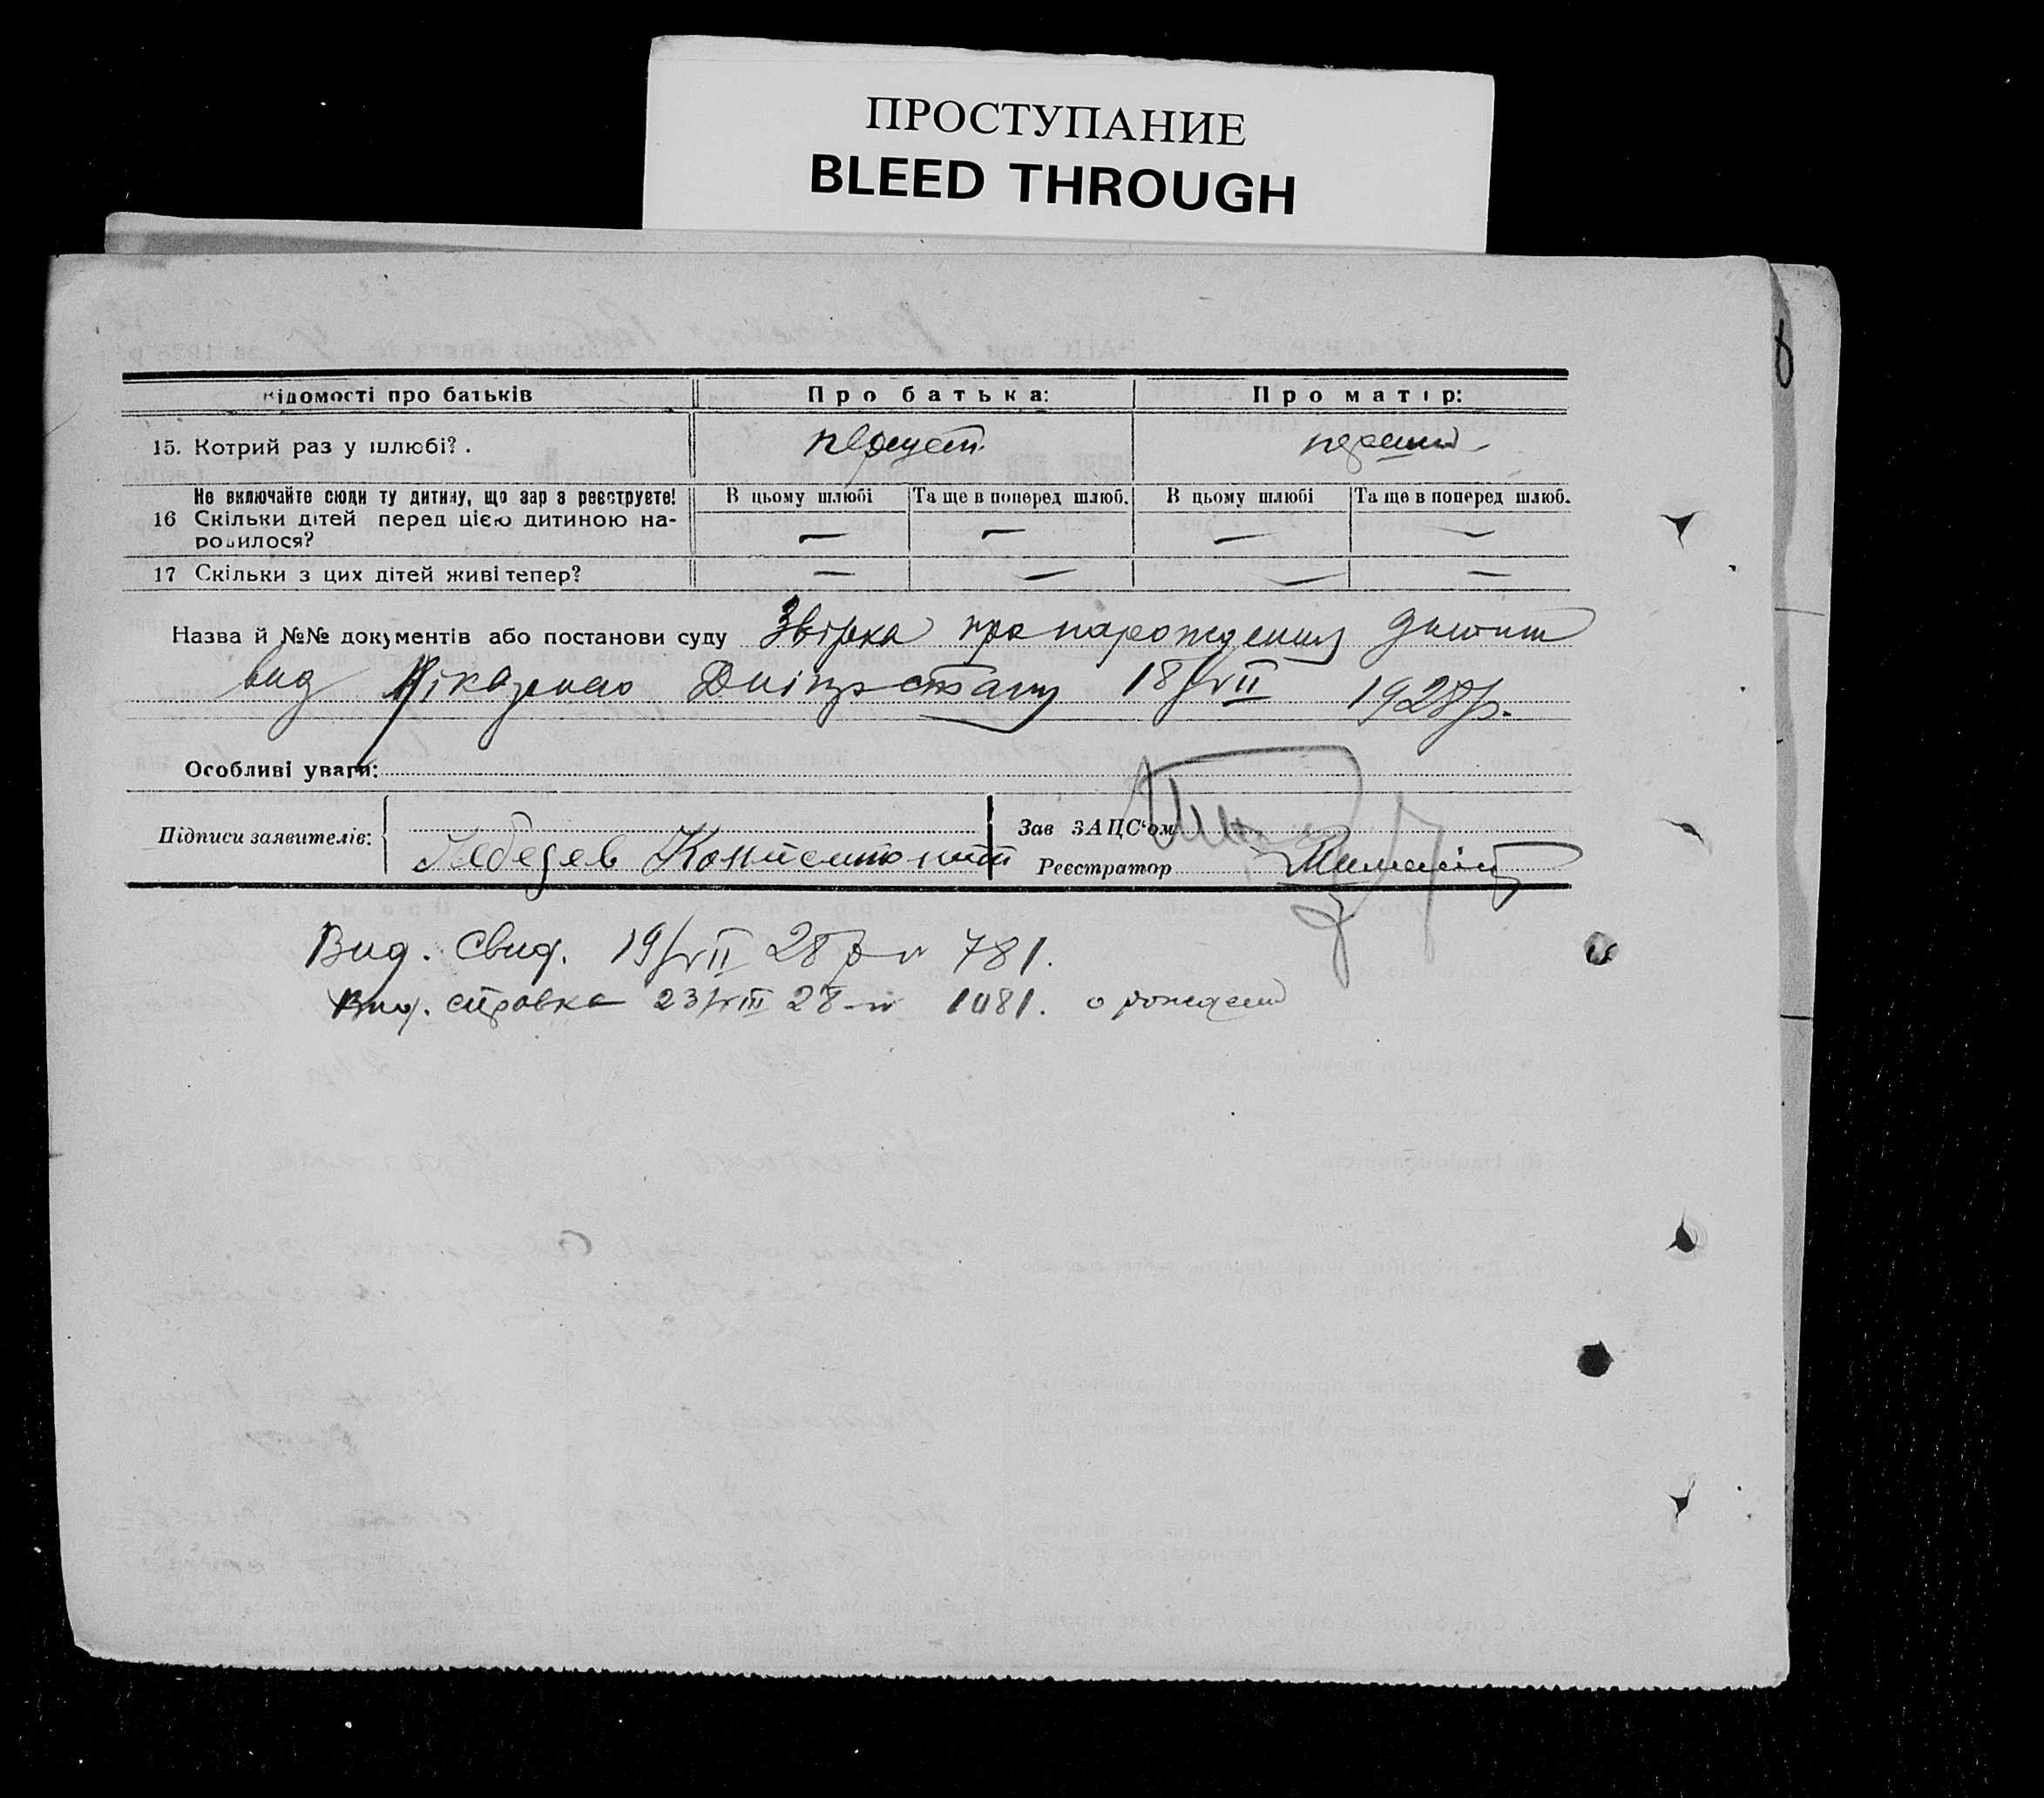 ПРОСТУПАНИЕ
BLEED THROUGH
Відомості про батьків Про батька: Про матір:
15. Котрий раз у шлюбі? .
Не включайте сюди ту дитину, що зараз реєструєте! В цьому шлюбі Та ще в поперед шлюб. В цьому шлюбі Та ще в поперед шлюб.
16 Скільки дітей перед цією дитиною на-
родилося? — — — —
17 Скільки з цих дітей живі тепер? — — — —
Назва й №№ документів або постанови суду
від 18/VII 1928 р.
Особливі уваги:
Підписи заявителів: Зав ЗАЦС'ом
Лебедев Реєстратор
Вид. свид. 19/VII 28 р 781.
Вид. справка 23/VIII 28 1081. о рожден